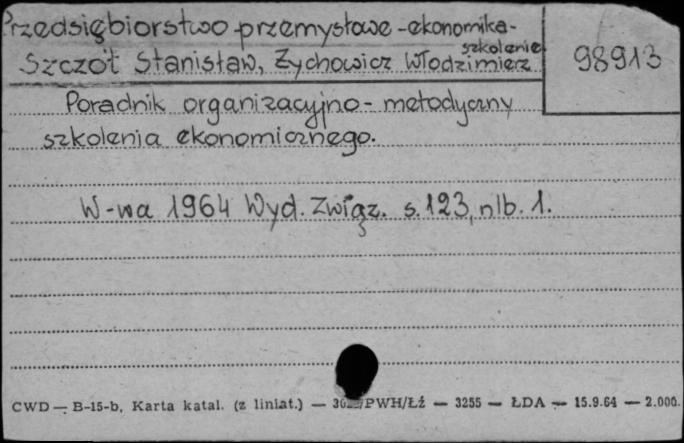 Przedsiębiorstwo przemysłowe - ekonomika -
szkolenie
Szczot Stanisław, Żychowicz Włodzimierz
98913
Poradnik organizacyjno - metodyczny
szkolenia ekonomicznego.
W-wa 1964 Wyd. Związ. s. 123, nlb. 1.
CWD — B-15-b, Karta katal. (z liniat.) — PWH/Łź — 3255 — ŁDA — 15.9.64 — 2.000.